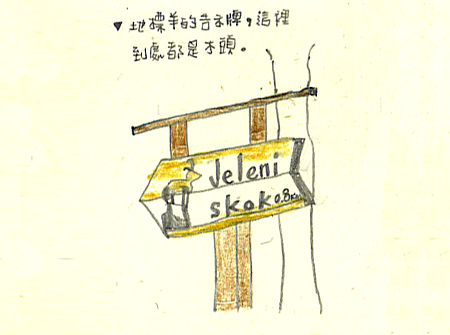 ▼地標羊的告示牌，這裡
到處都是木頭。
Jeleni
skok 0.8km